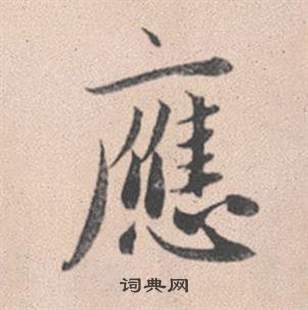 應
词典网